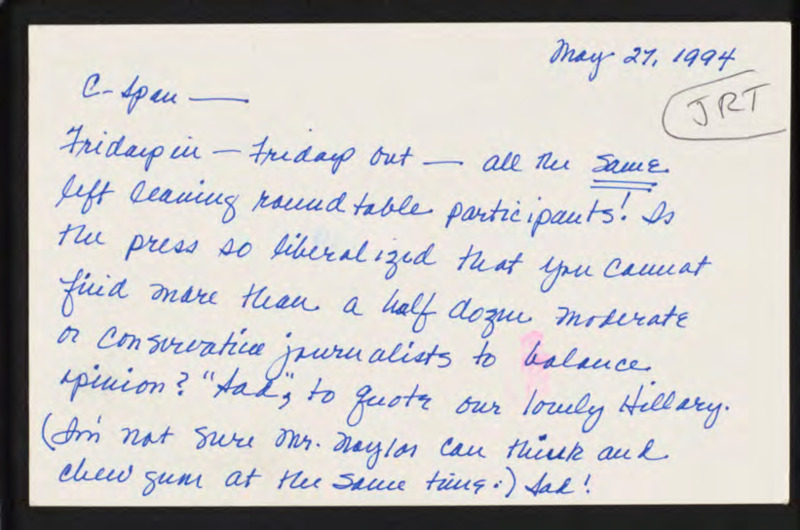 May 27, 1994
C-Span —
JRT
Friday in — Friday out — all the same
left leaning roundtable participants! Is
the press so liberalized that you cannot
find more than a half dozen moderate
or conservative journalists to balance
opinion? "Sad", to quote our lovely Hillary.
(I'm not sure Mr. Naylor can think and
chew gum at the same time.) Sad!